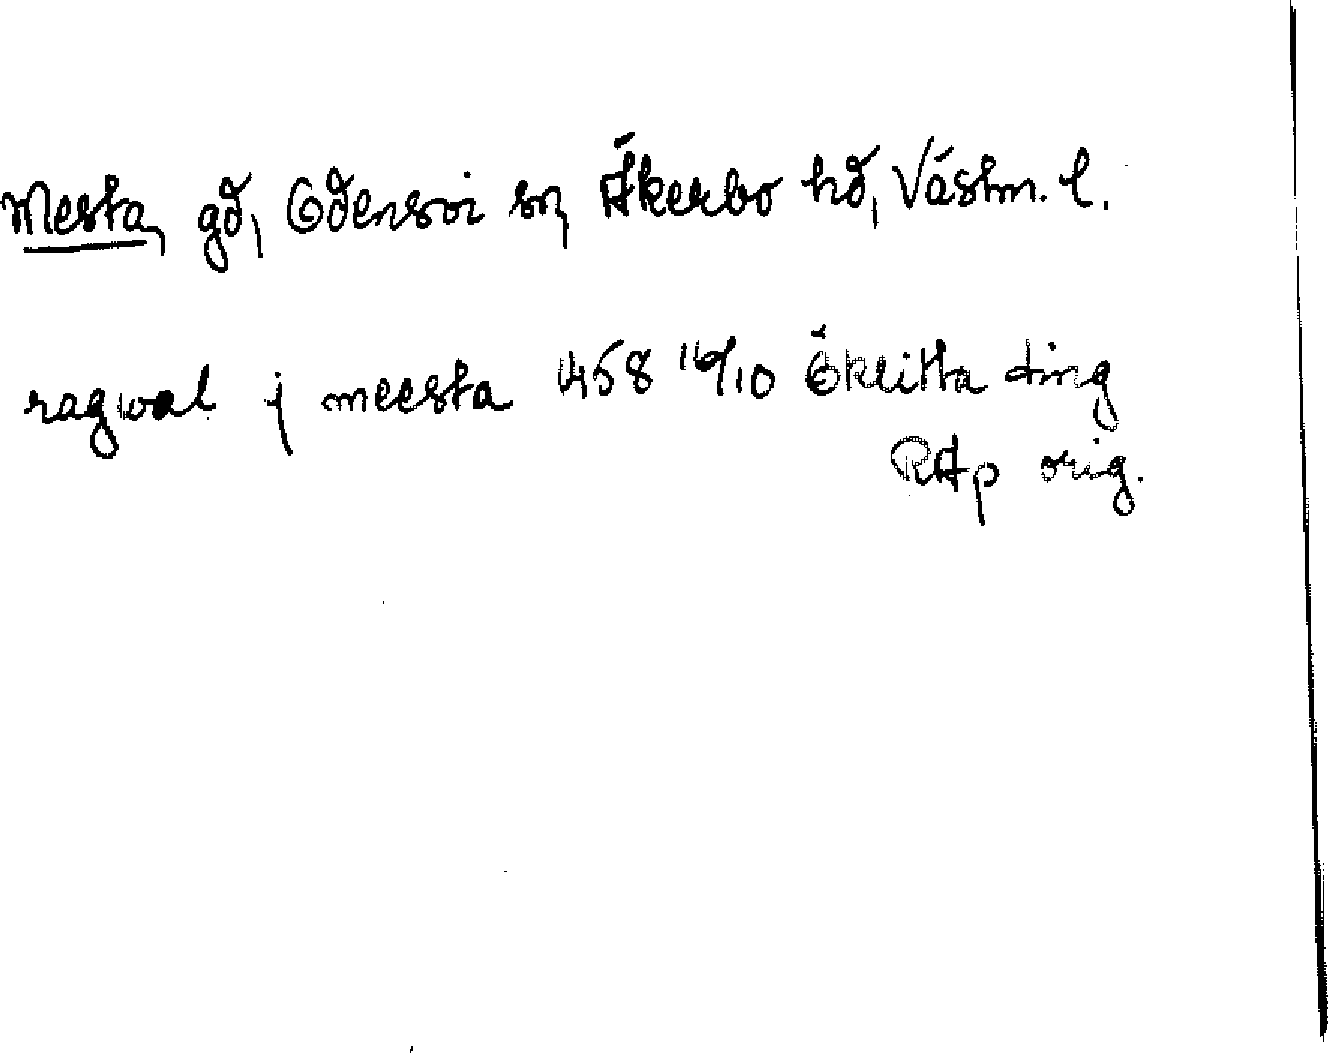 Mesta, gd, Odensvi sn, Åkerbo hd, Västm. l.
ragwal j meesta 1458 16/10 Öklitta ting
RAp orig.